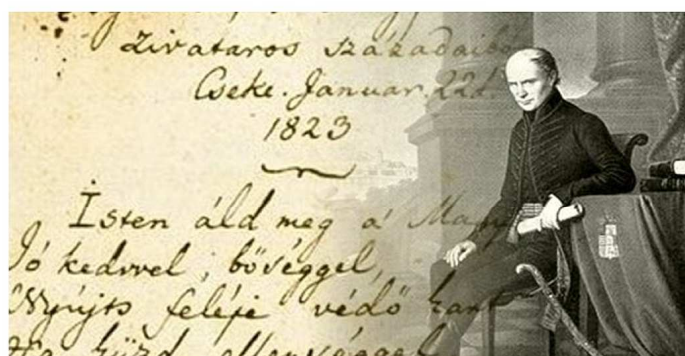 zivataros századaibó
Cseke. Januar. 22d.
1823
Isten áld meg a' Magy
Jó kedvvel, bőséggel,
Nyújts feléje védő kart
Ha küzd ellenséggel